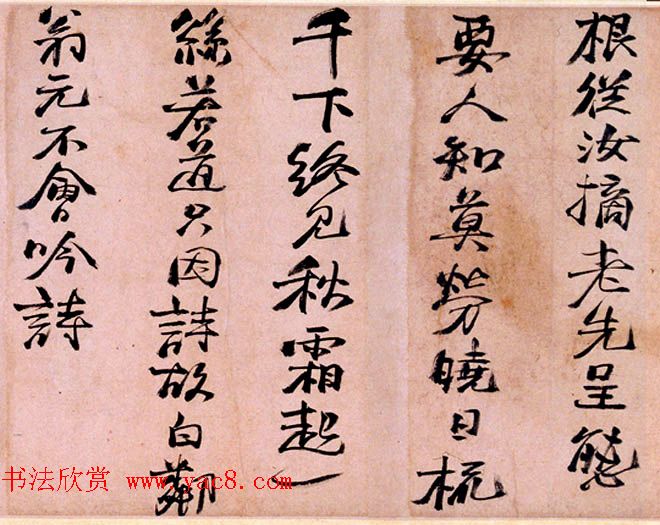 根從汝摘老先呈態
要人知莫勞曉日梳
千下終見秋霜起一
絲若道只因詩故白鄰
翁元不會吟詩
书法欣赏 www.yac8.com